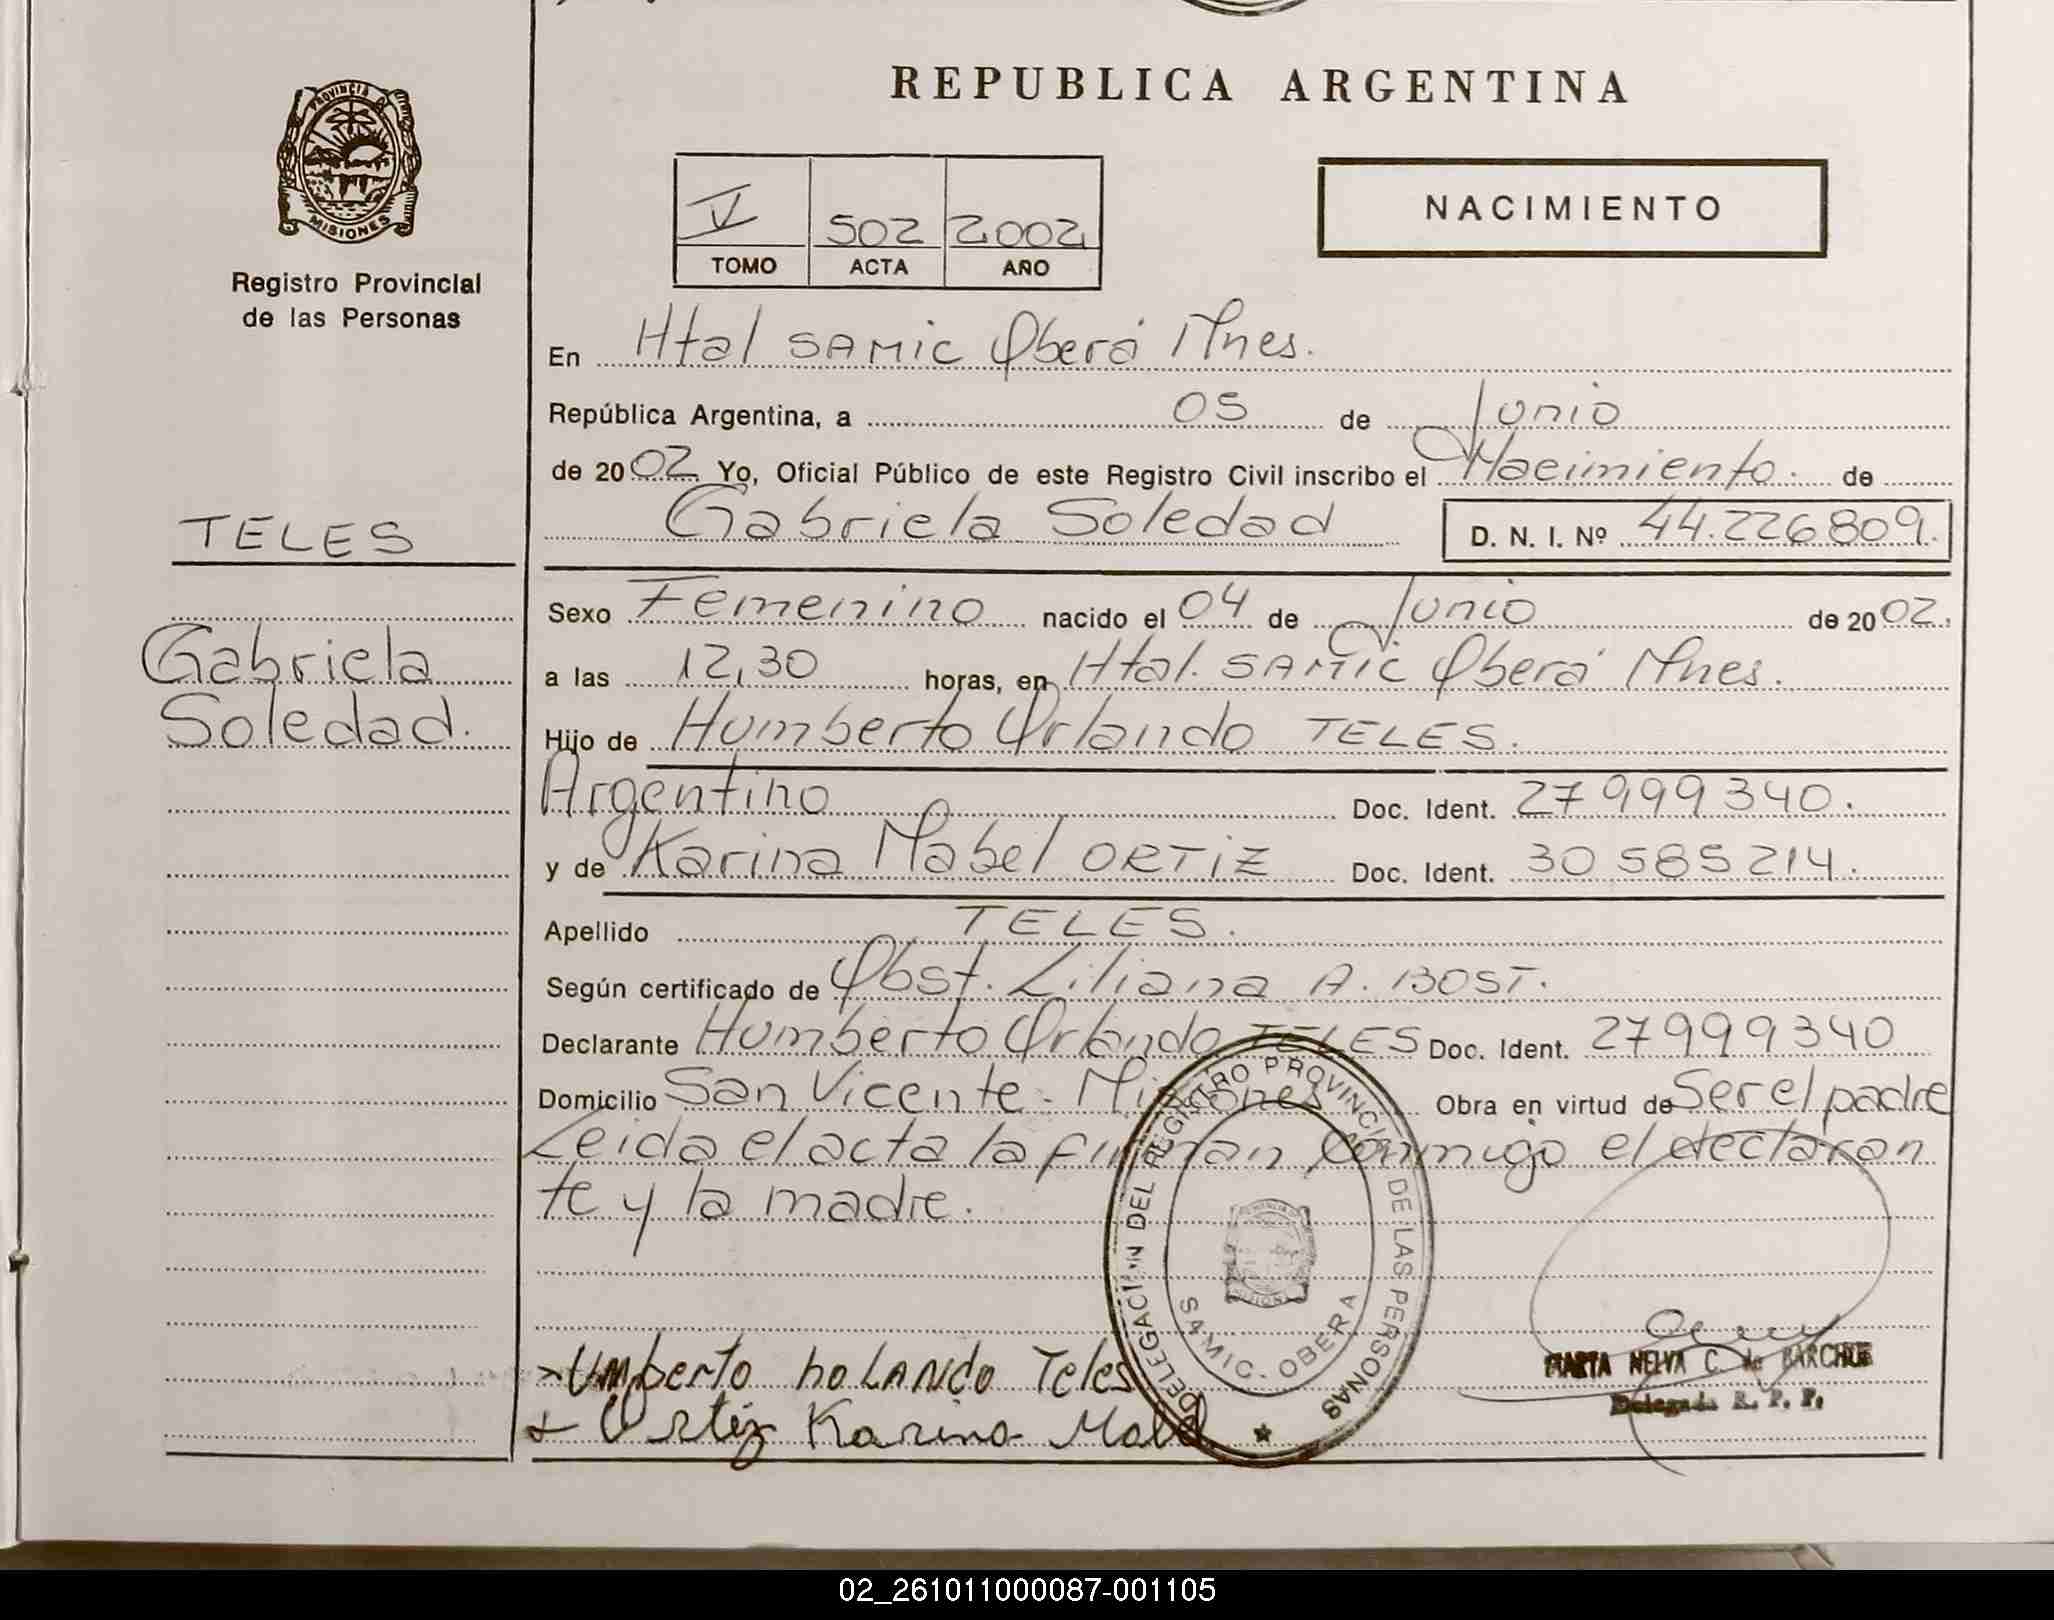 REPUBLICA ARGENTINA
PROVINCIA D
MISIONES
Registro Provincial
de las Personas
V 502 2002
TOMO ACTA AÑO
NACIMIENTO
En Htal SAMIC Oberá Mnes.
República Argentina, a 05 de Junio
de 2002 Yo, Oficial Público de este Registro Civil inscribo el Nacimiento. de
Gabriela Soledad D. N. I. Nº 44.226809.
TELES
Gabriela
Soledad.
Sexo Femenino nacido el 04 de Junio de 2002.
a las 12,30 horas, en Htal. SAMIC Oberá Mnes.
Hijo de Humberto Orlando TELES.
Argentino Doc. Ident. 27999340.
y de Karina Mabel ORTIZ Doc. Ident. 30585214.
Apellido TELES.
Según certificado de Obst. Liliana A. BOST.
Declarante Humberto Orlando TELES Doc. Ident. 27999340
Domicilio San Vicente - Misiones Obra en virtud de Ser el padre
Leida el acta la firman conmigo el declaran
te y la madre.
DELEGACION DEL REGISTRO PROVINCIAL DE LAS PERSONAS
SAMIC. OBERA
Umberto holando Teles
Ortiz Karina Mabel
MARTA NELVA C. de BARCHUK
Delegada R. P. P.
02_261011000087-001105